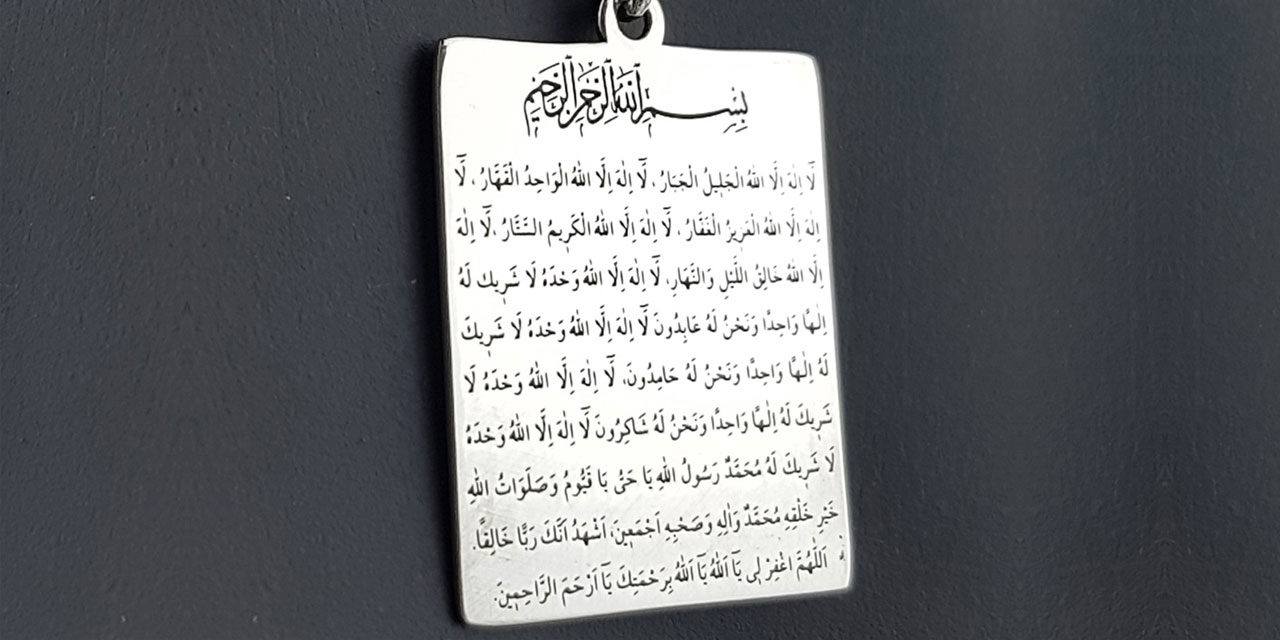 بِسْمِ اللهِ الرَّحْمٰنِ الرَّحِيمِ
لَٓا اِلٰهَ اِلَّا اللهُ الْجَلِيلُ الْجَبَّارُ، لَٓا اِلٰهَ اِلَّا اللهُ الْوَاحِدُ الْقَهَّارُ، لَٓا
اِلٰهَ اِلَّا اللهُ الْعَزِيزُ الْغَفَّارُ، لَٓا اِلٰهَ اِلَّا اللهُ الْكَرِيمُ السَّتَّارُ، لَٓا اِلٰهَ
اِلَّا اللهُ خَالِقُ اللَّيْلِ وَالنَّهَارِ، لَٓا اِلٰهَ اِلَّا اللهُ وَحْدَهُ لَا شَرِيكَ لَهُ
اِلٰهًا وَاحِدًا وَنَحْنُ لَهُ عَابِدُونَ لَٓا اِلٰهَ اِلَّا اللهُ وَحْدَهُ لَا شَرِيكَ
لَهُ اِلٰهًا وَاحِدًا وَنَحْنُ لَهُ حَامِدُونَ، لَٓا اِلٰهَ اِلَّا اللهُ وَحْدَهُ لَا
شَرِيكَ لَهُ اِلٰهًا وَاحِدًا وَنَحْنُ لَهُ شَاكِرُونَ لَٓا اِلٰهَ اِلَّا اللهُ وَحْدَهُ
لَا شَرِيكَ لَهُ مُحَمَّدٌ رَسُولُ اللهِ يَا حَىُّ يَا قَيُّومُ وَصَلَوَاتُ اللهِ
خَيْرِ خَلْقِهِ مُحَمَّدٌ وَاٰلِهِ وَصَحْبِهِ اَجْمَعِينَ، اَشْهَدُ اَنَّكَ رَبًّا خَالِقًا.
اَللّٰهُمَّ اغْفِرْ لِى يَٓا اَللهُ يَٓا اَللهُ بِرَحْمَتِكَ يَٓا اَرْحَمَ الرَّاحِمِينَ.